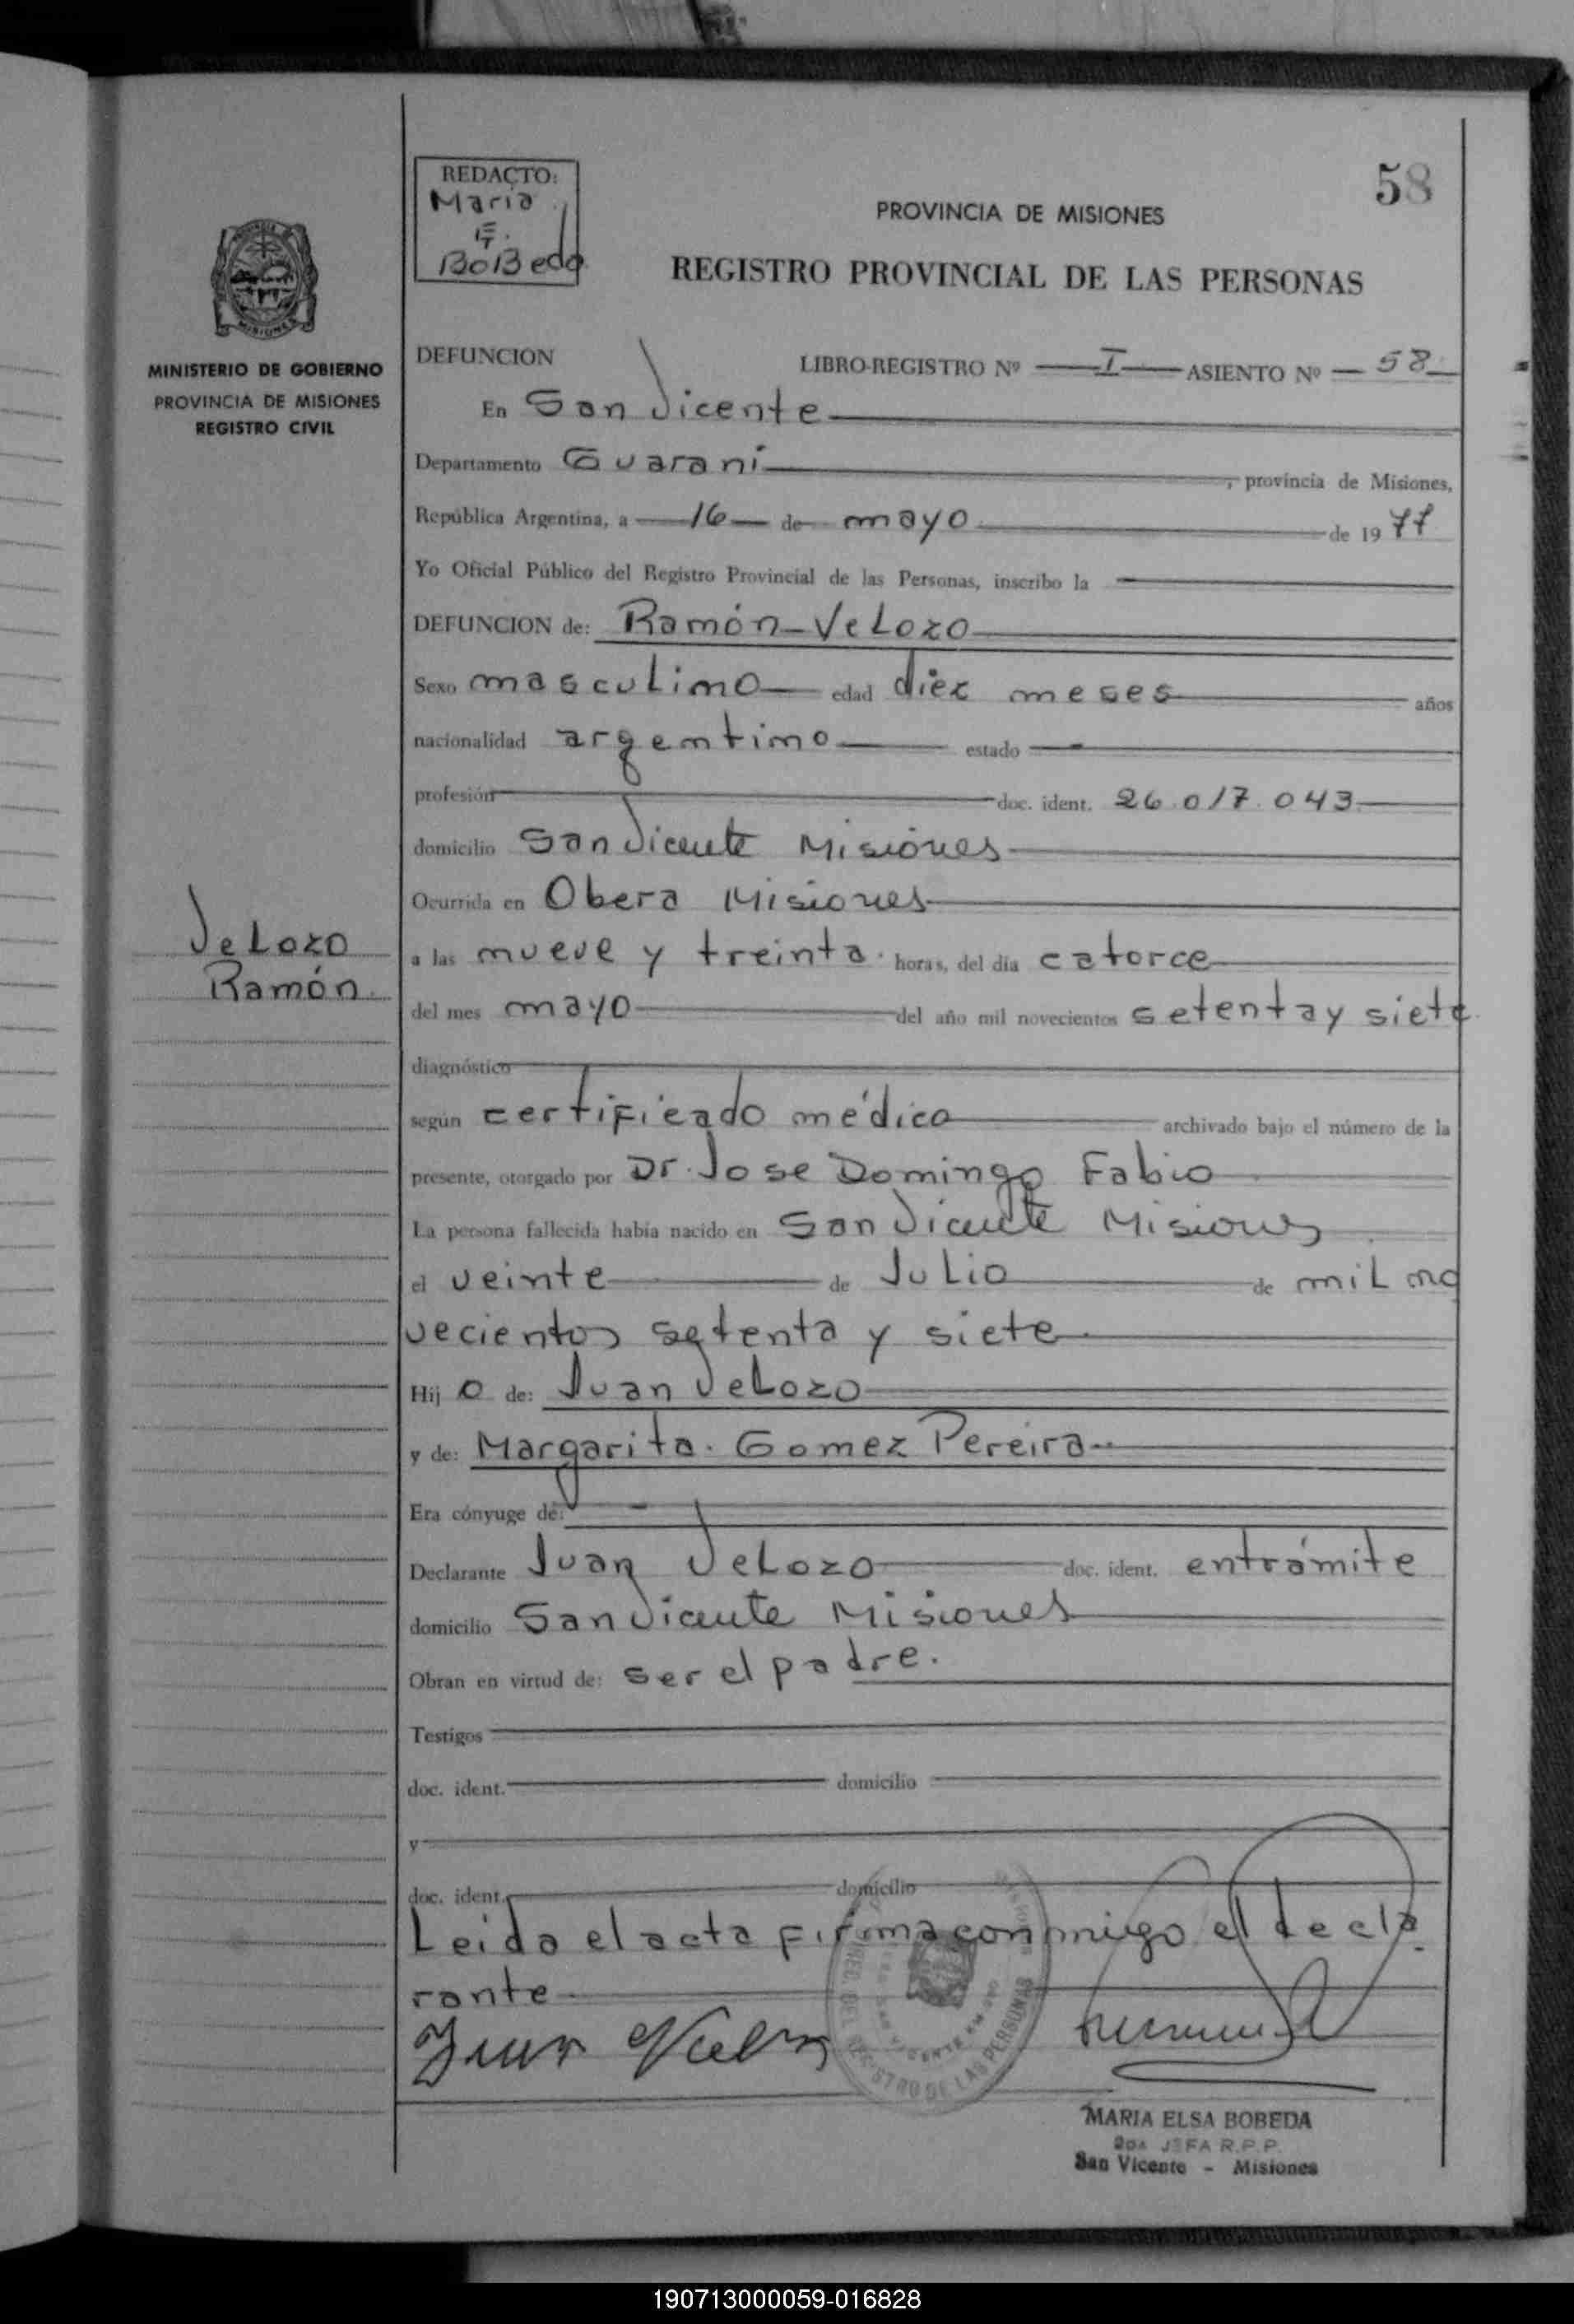 58
REDACTO:
Maria
E.
BoBeda
PROVINCIA DE MISIONES
REGISTRO PROVINCIAL DE LAS PERSONAS
MISIONES
MINISTERIO DE GOBIERNO
PROVINCIA DE MISIONES
REGISTRO CIVIL
DEFUNCION LIBRO-REGISTRO Nº I ASIENTO Nº 58
En San Vicente
Departamento Guaraní, provincia de Misiones,
República Argentina, a 16 de mayo de 1977
Yo Oficial Público del Registro Provincial de las Personas, inscribo la
DEFUNCION de: Ramón Velozo
Sexo masculino edad diez meses años
nacionalidad argentino estado -
profesión doc. ident. 26.017.043
domicilio San Vicente Misiones
Ocurrida en Obera Misiones
Velozo
Ramón
a las nueve y treinta horas, del día catorce
del mes mayo del año mil novecientos setenta y siete
diagnóstico
según certificado médico archivado bajo el número de la
presente, otorgado por Dr. Jose Domingo Fabio
La persona fallecida había nacido en San Vicente Misiones
el veinte de Julio de mil no
vecientos setenta y siete
Hijo de: Juan Velozo
y de: Margarita Gomez Pereira
Era cónyuge de: -
Declarante Juan Velozo doc. ident. entrámite
domicilio San Vicente Misiones
Obran en virtud de: ser el padre.
Testigos
doc. ident. domicilio
y
doc. ident. domicilio
Leida el acta firma conmigo el decla
rante
Juan
REGISTRO DE LAS PERSONAS
MARIA ELSA BOBEDA
JEFA R.P.P.
San Vicente - Misiones
190713000059-016828